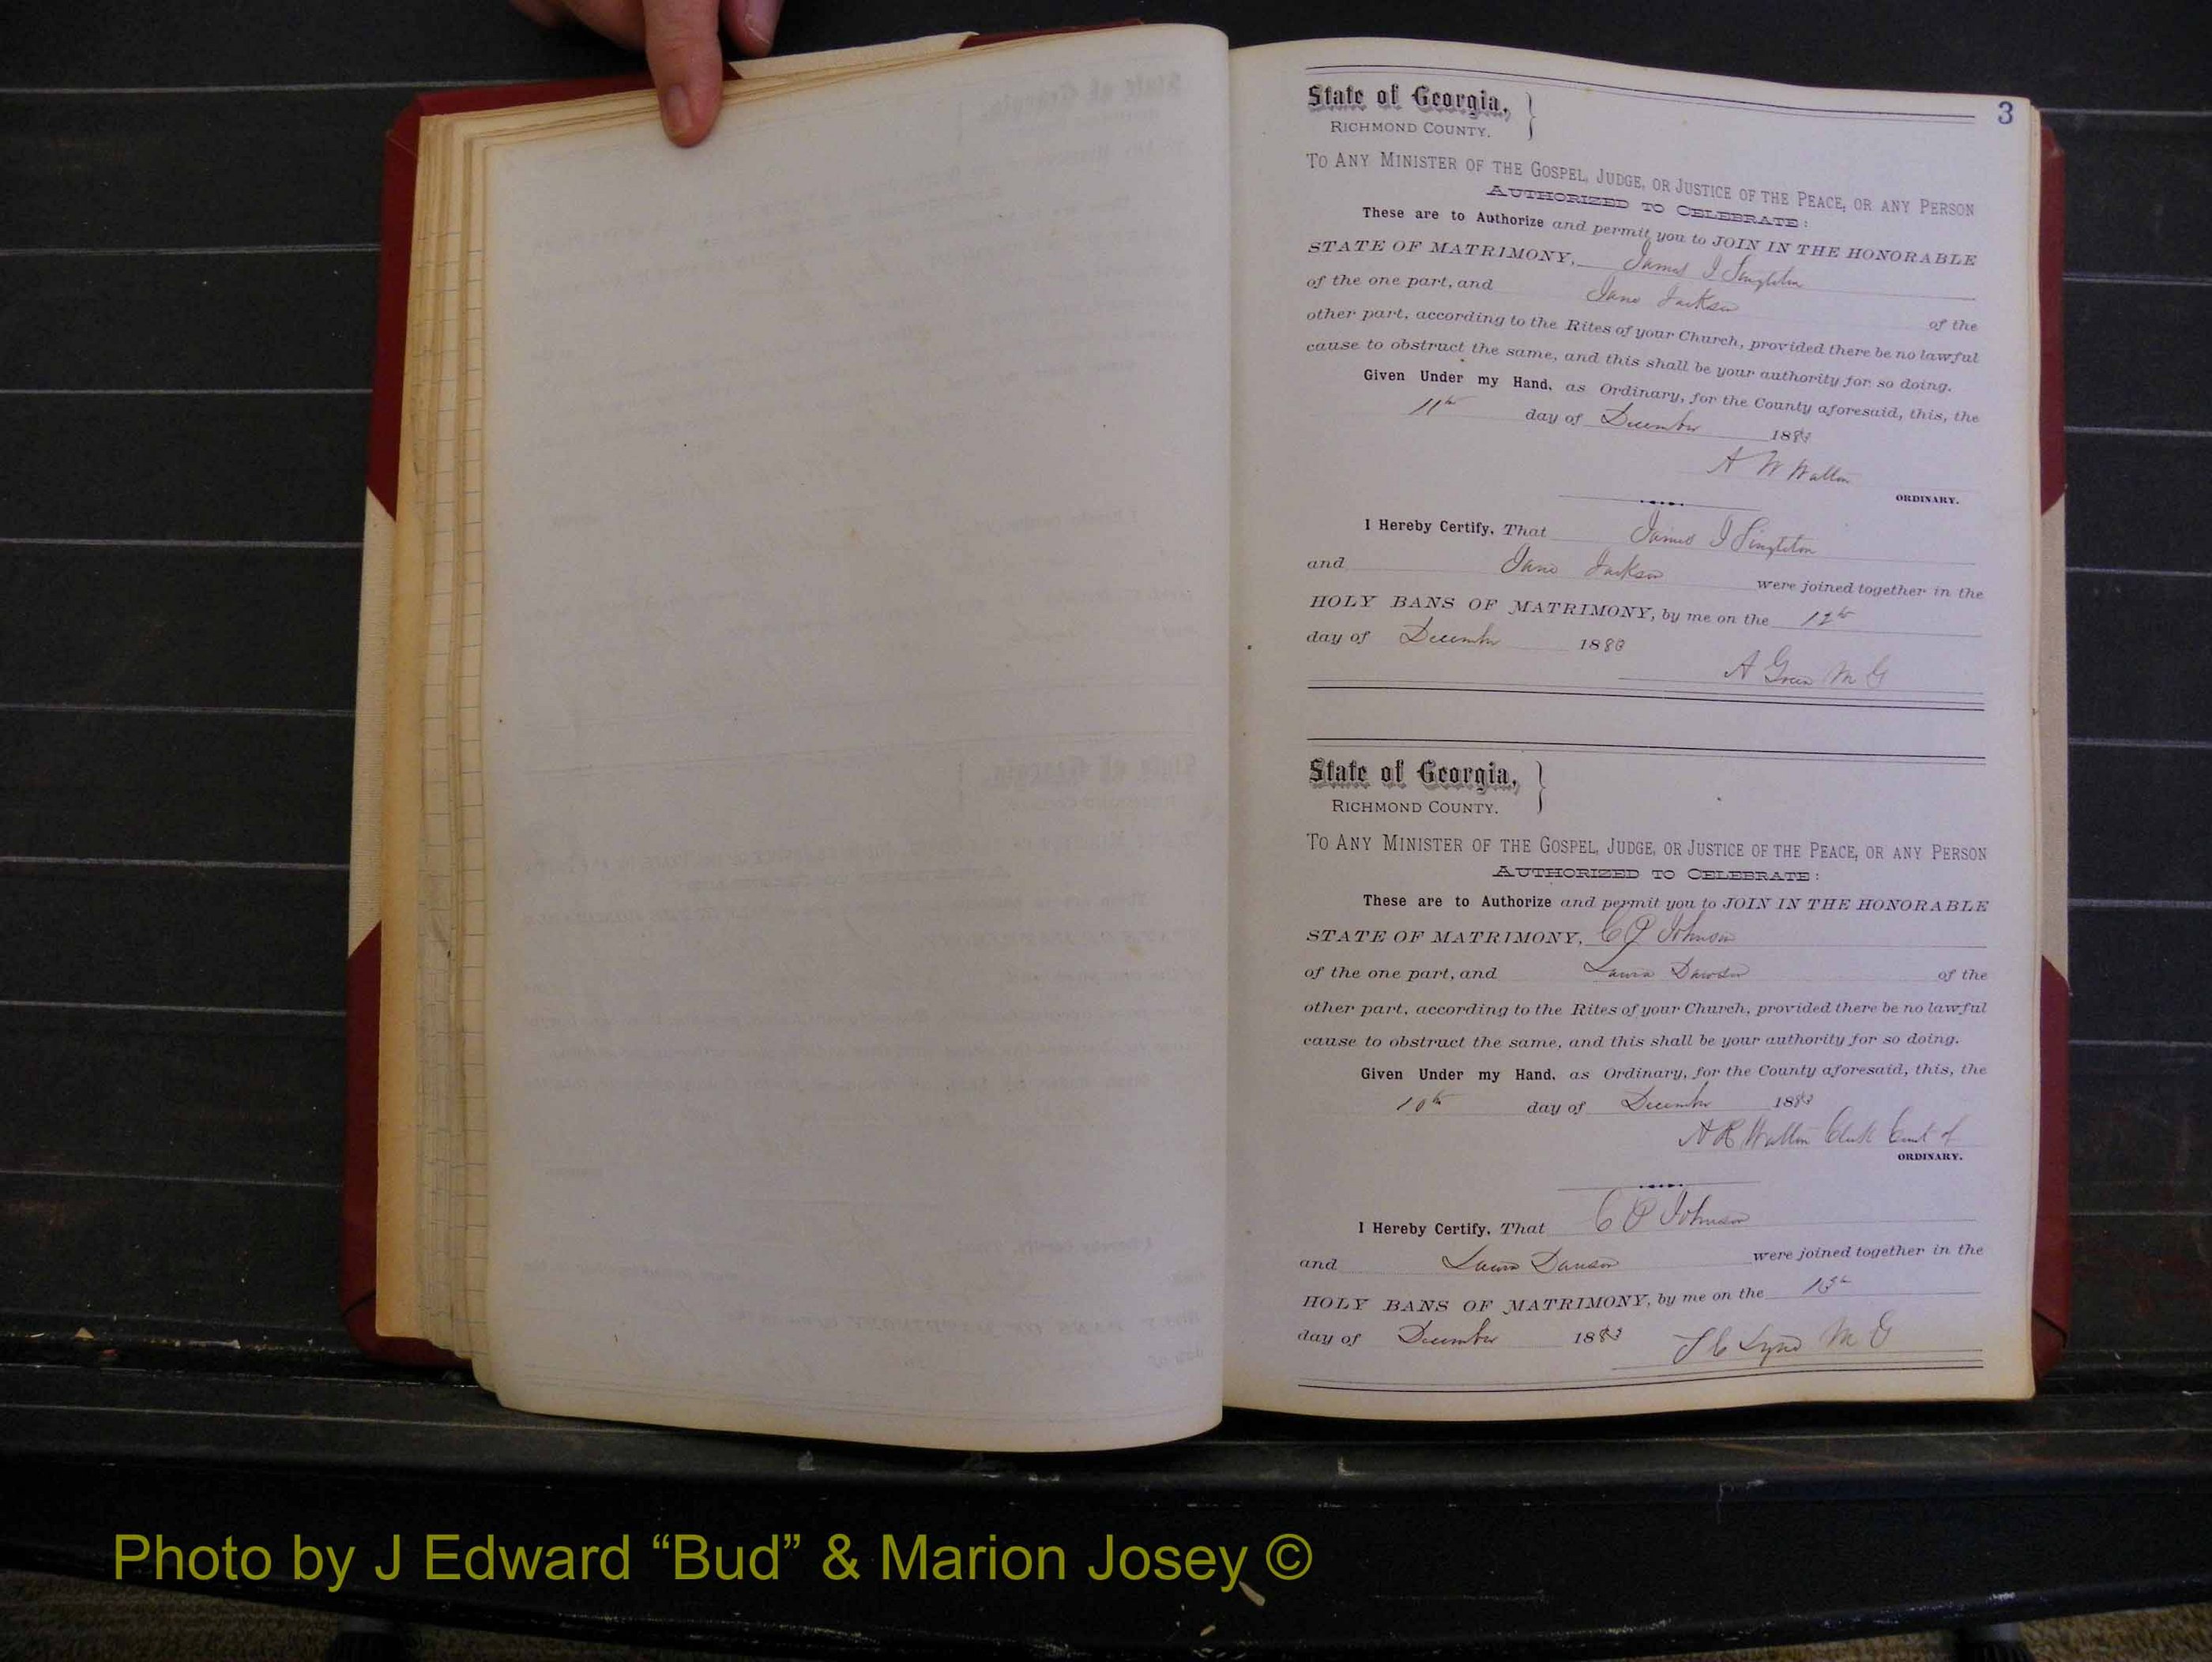 3
State of Georgia,
RICHMOND COUNTY.
TO ANY MINISTER OF THE GOSPEL, JUDGE, OR JUSTICE OF THE PEACE, OR ANY PERSON
AUTHORIZED TO CELEBRATE:
These are to Authorize and permit you to JOIN IN THE HONORABLE
STATE OF MATRIMONY, James I Singleton
of the one part, and Jane Jackson of the
other part, according to the Rites of your Church, provided there be no lawful
cause to obstruct the same, and this shall be your authority for so doing.
Given Under my Hand, as Ordinary, for the County aforesaid, this, the
11th day of December 1883
A W Walton
ORDINARY.
I Hereby Certify, That James I Singleton
and Jane Jackson were joined together in the
HOLY BANS OF MATRIMONY, by me on the 12th
day of December 1883
A Green M G
State of Georgia,
RICHMOND COUNTY.
TO ANY MINISTER OF THE GOSPEL, JUDGE, OR JUSTICE OF THE PEACE, OR ANY PERSON
AUTHORIZED TO CELEBRATE:
These are to Authorize and permit you to JOIN IN THE HONORABLE
STATE OF MATRIMONY, C P Johnson
of the one part, and Laura Dawson of the
other part, according to the Rites of your Church, provided there be no lawful
cause to obstruct the same, and this shall be your authority for so doing.
Given Under my Hand, as Ordinary, for the County aforesaid, this, the
10th day of December 1883
A R Walton Clerk Court of
ORDINARY.
I Hereby Certify, That C P Johnson
and Laura Dawson were joined together in the
HOLY BANS OF MATRIMONY, by me on the 13th
day of December 1883
M G
Photo by J Edward “Bud” & Marion Josey ©